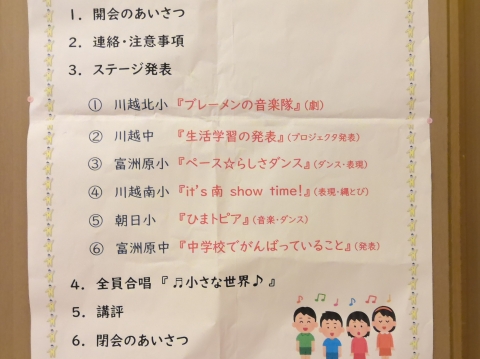 1. 開会のあいさつ
2. 連絡・注意事項
3. ステージ発表
① 川越北小 『ブレーメンの音楽隊』（劇）
② 川越中 『生活学習の発表』（プロジェクタ発表）
③ 富洲原小 『ペース☆らしさダンス』（ダンス・表現）
④ 川越南小 『it's 南 show time!』（表現・縄とび）
⑤ 朝日小 『ひまトピア』（音楽・ダンス）
⑥ 富洲原中 『中学校でがんばっていること』（発表）
4. 全員合唱 『 ♬小さな世界♪ 』
5. 講評
6. 閉会のあいさつ